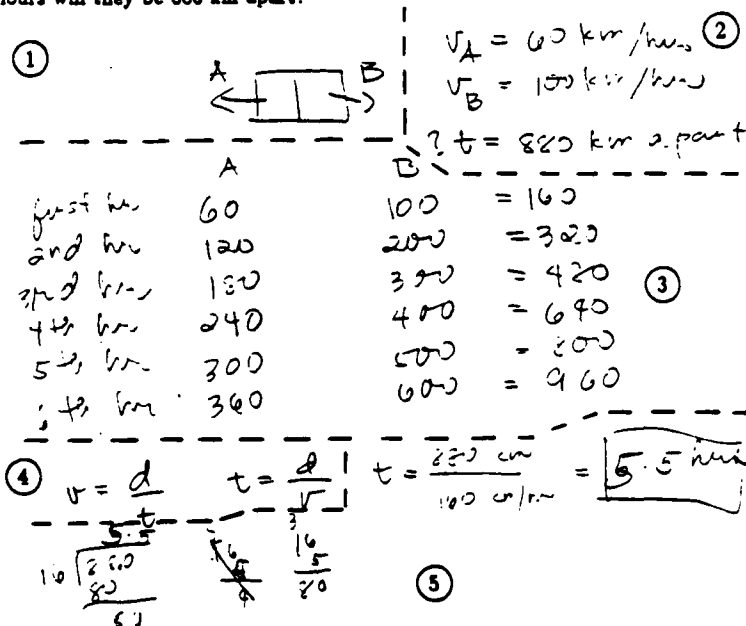 ours will they be 880 km apart.
① A B
② v_A = 60 km/hrs
v_B = 100 km/hrs
? t = 880 km apart
A B
first hr 60 100 = 160
2nd hr 120 200 = 320
3rd hrs 180 300 = 480
4th hr 240 400 = 640
5th hr 300 500 = 800
th hr 360 600 = 960
③
④ v = d/t t = d/v
t = 880 km / 160 km/hr = 5.5 hrs
5.5
16 880 16
80 5
80 80
⑤